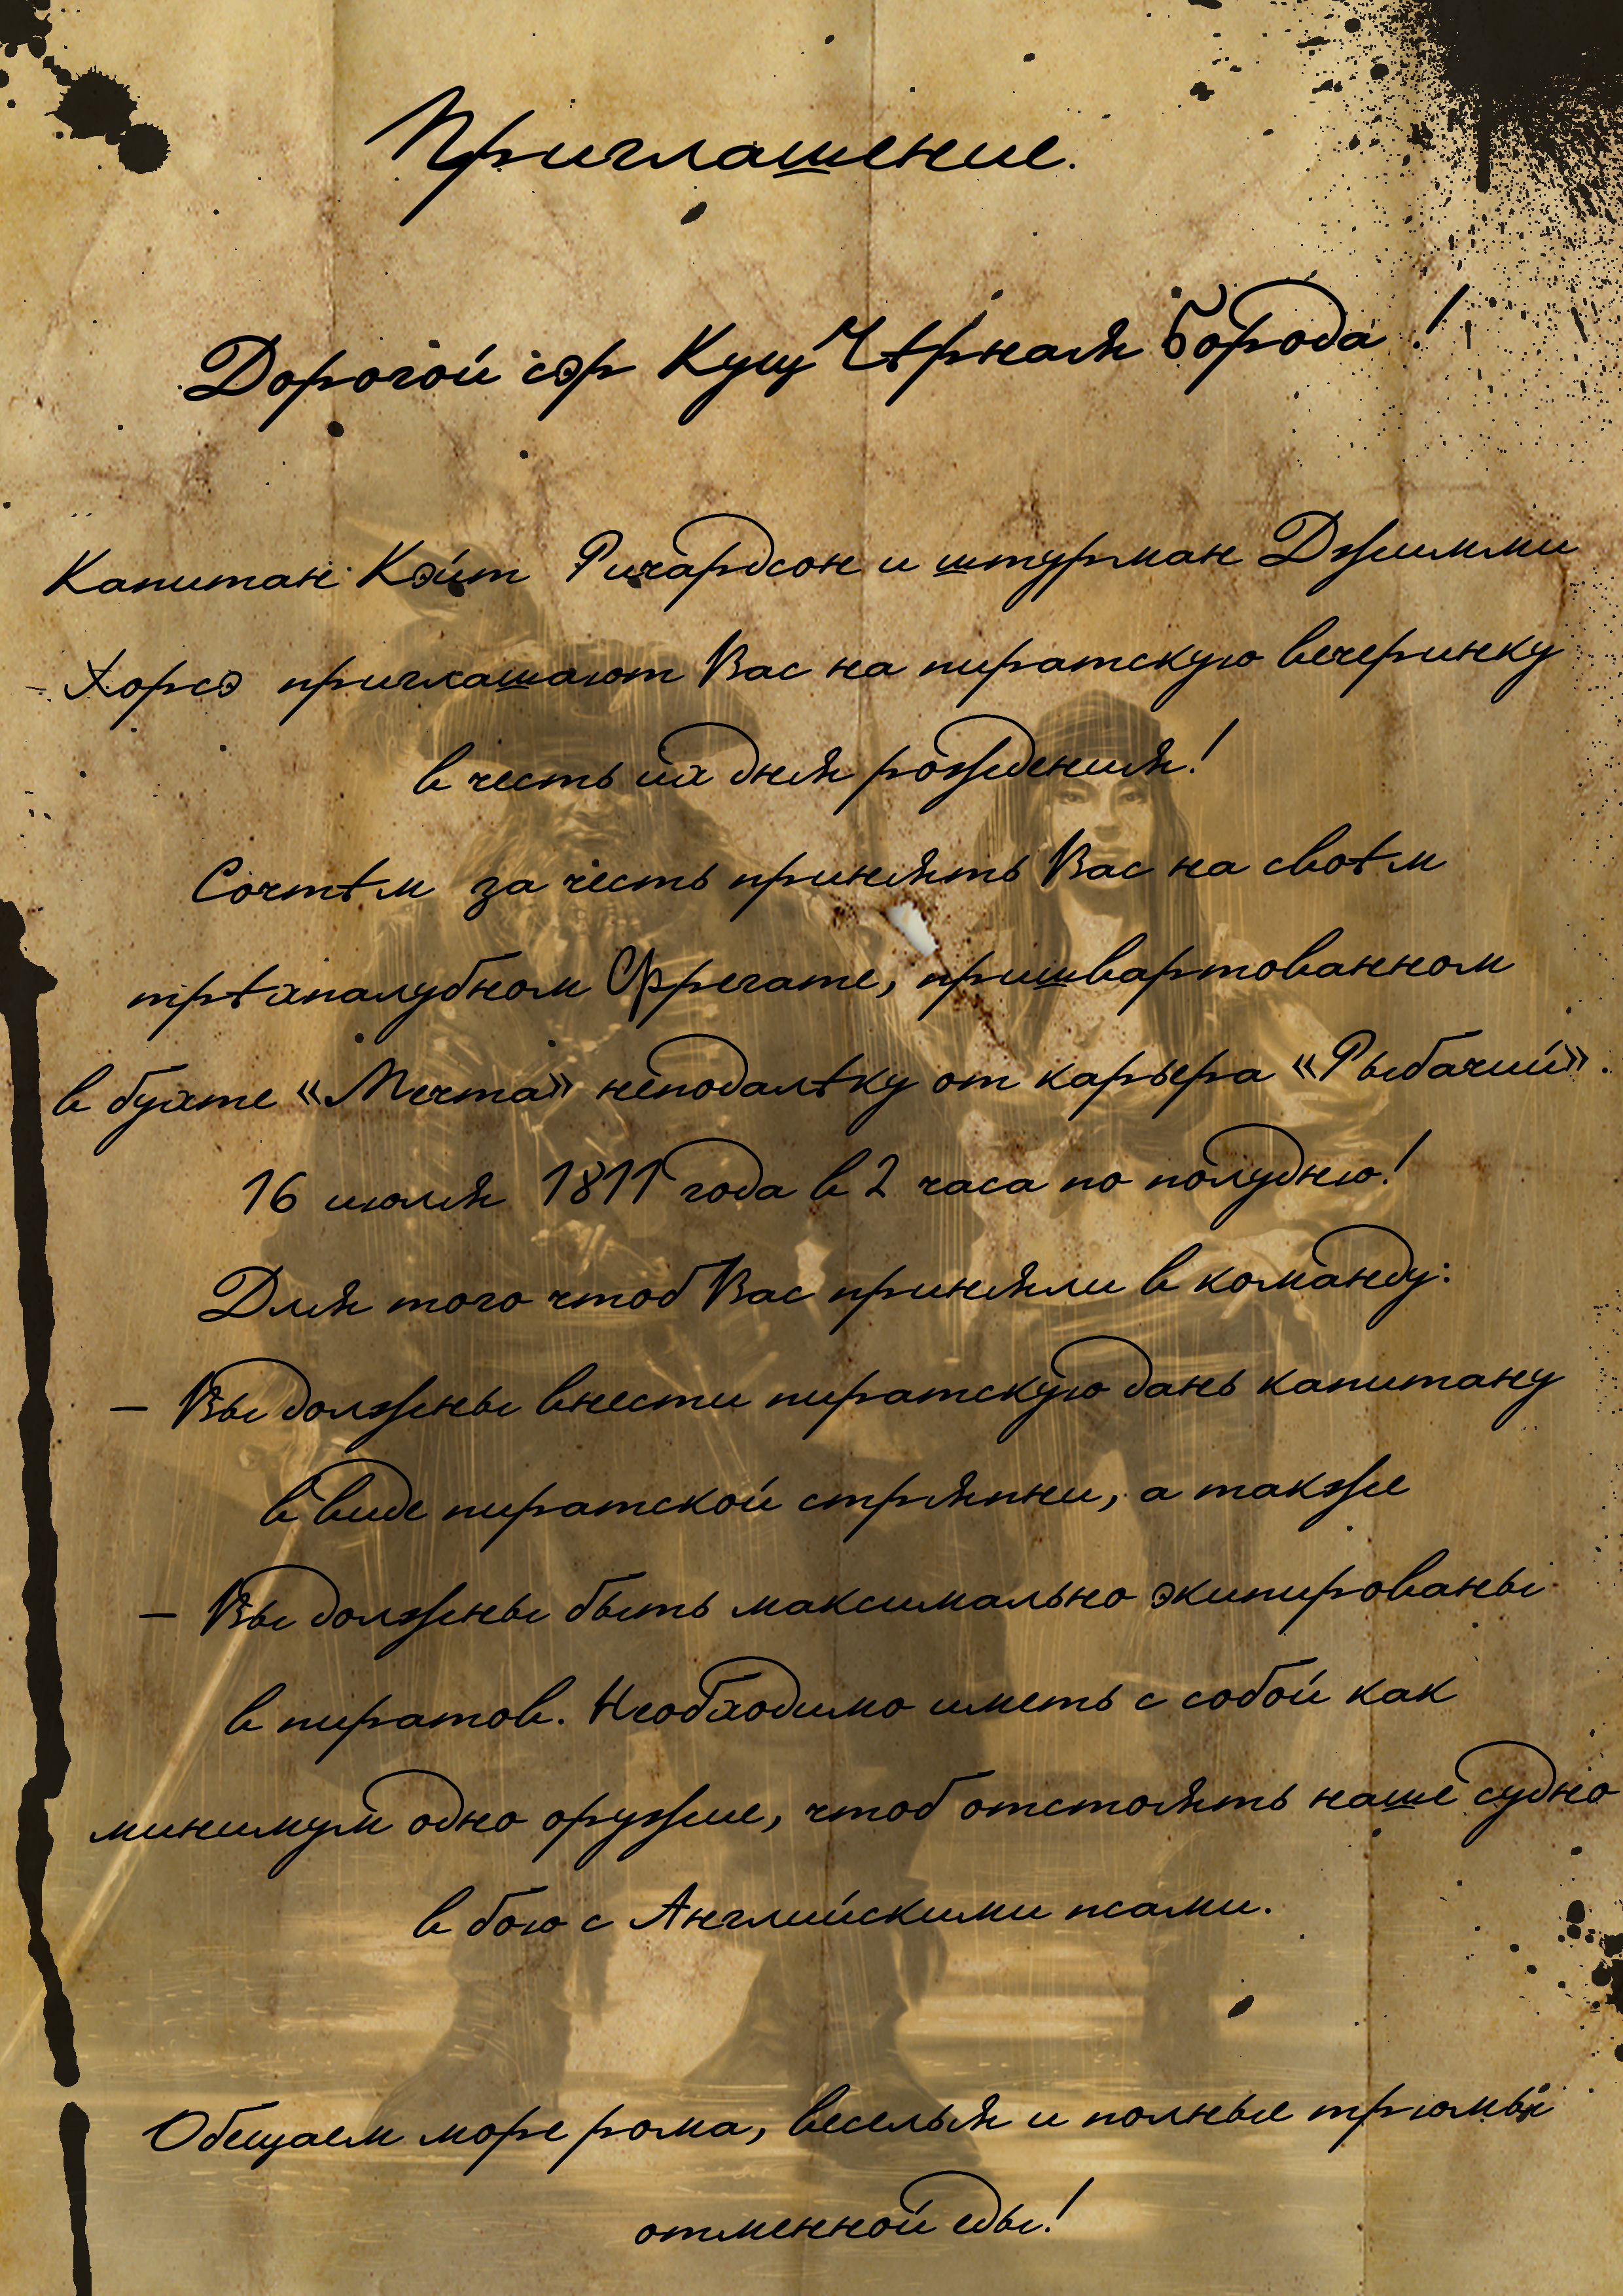 Приглашение.
Дорогой сэр Кущ Чёрная Борода!
Капитан Кэйт Ричардсон и штурман Джимми
Хорсэ приглашают Вас на пиратскую вечеринку
в честь их дня рождения!
Сочтём за честь принять Вас на своём
трёхпалубном Фрегате, пришвартованном
в бухте «Мечта» неподалёку от карьера «Рыбачий».
16 июля 1811 года в 2 часа по полудню!
Для того чтоб Вас приняли в команду:
– Вы должны внести пиратскую дань капитану
в виде пиратской стряпни, а также
– Вы должны быть максимально экипированы
в пиратов. Необходимо иметь с собой как
минимум одно оружие, чтоб отстоять наше судно
в бою с Английскими псами.
Обещаем море рома, веселья и полные трюмы
отменной еды!